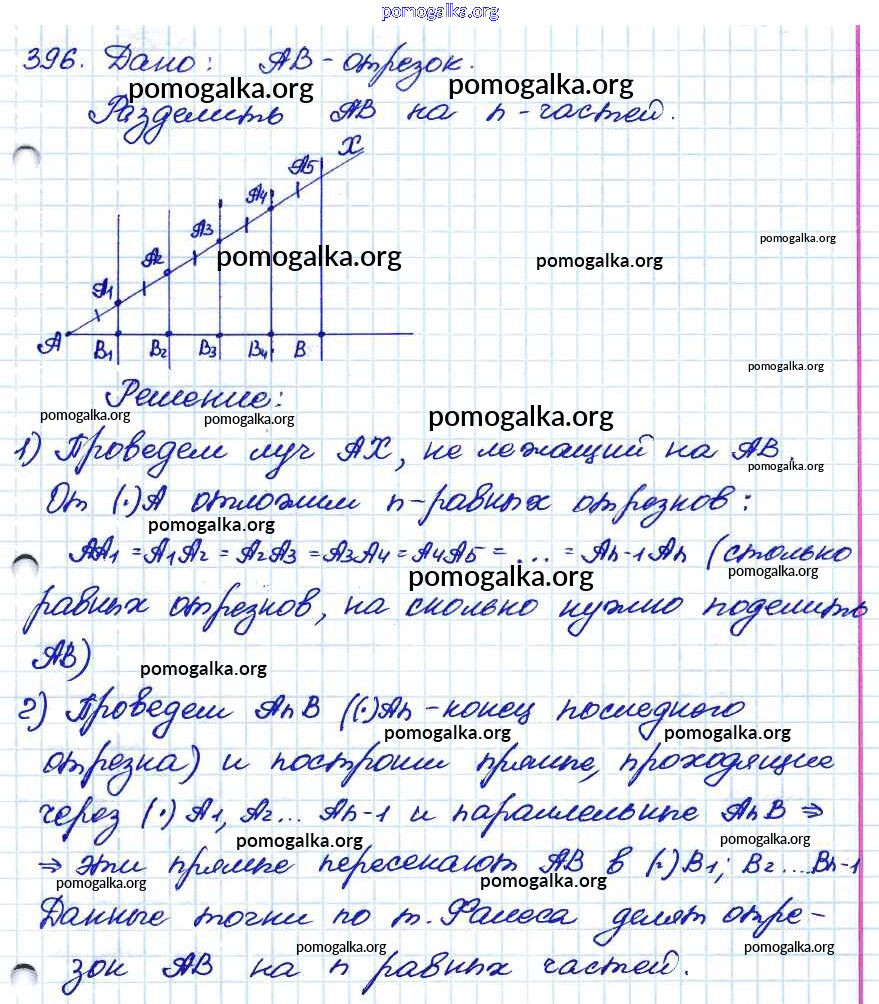 pomogalka.org
396. Дано: AB - отрезок.
pomogalka.org pomogalka.org
Разделить AB на n-частей.
X
A5
A4
A3
A2
A1
pomogalka.org
pomogalka.org pomogalka.org
A B1 B2 B3 B4 B
pomogalka.org
Решение:
pomogalka.org pomogalka.org pomogalka.org
1) Проведем луч AX, не лежащий на AB.
pomogalka.org
От (·)A отложим n-равных отрезков:
pomogalka.org
AA1 = A1A2 = A2A3 = A3A4 = A4A5 = ... = An-1An (столько
pomogalka.org pomogalka.org
равных отрезков, на сколько нужно поделить
AB)
pomogalka.org
2) Проведем AnB ((·)An - конец последного
pomogalka.org pomogalka.org
отрезка) и построим прямые, проходящие
через (·) A1, A2... An-1 и параллельные AnB ⇒
pomogalka.org pomogalka.org
⇒ эти прямые пересекают AB в (·) B1; B2 ... Bn-1
pomogalka.org pomogalka.org
Данные точки по т. Фалеса делят отре-
pomogalka.org pomogalka.org
зок AB на n равных частей.